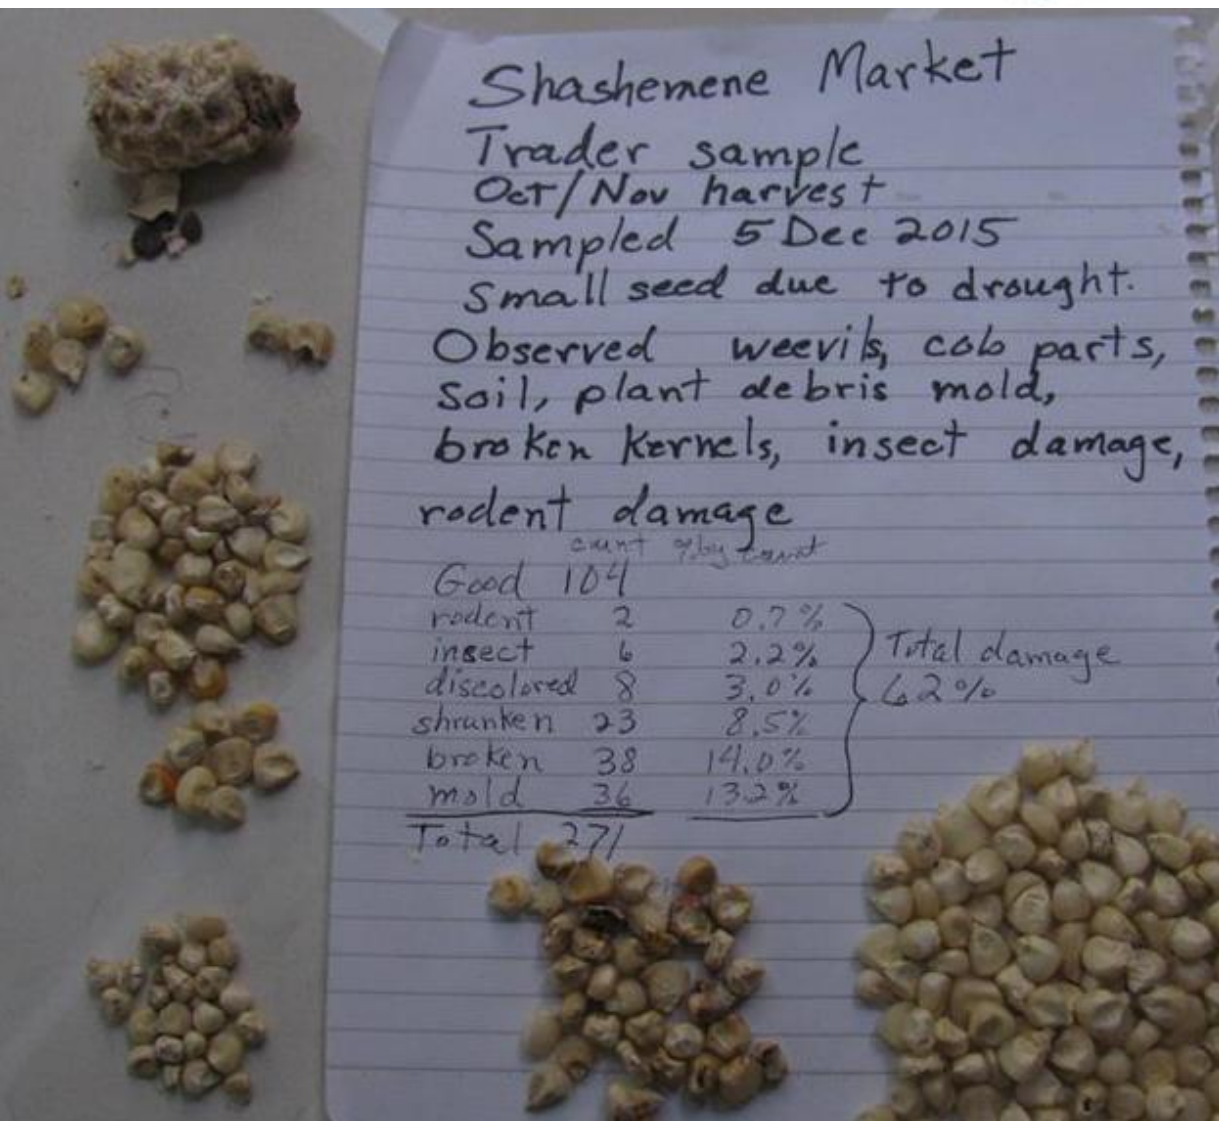 Shashemene Market
Trader sample
Oct/Nov harvest
Sampled 5 Dec 2015
Small seed due to drought.
Observed weevils, cob parts,
Soil, plant debris mold,
broken kernels, insect damage,
rodent damage
count % by count
Good 104
rodent 2 0.7%
insect 6 2.2%
discolored 8 3.0%
shrunken 23 8.5%
broken 38 14.0%
mold 36 13.2%
Total damage
62%
Total 271